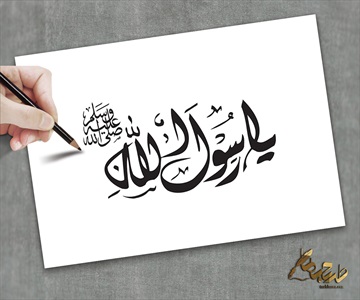 یا رسول الله
صلی الله علیه وسلم